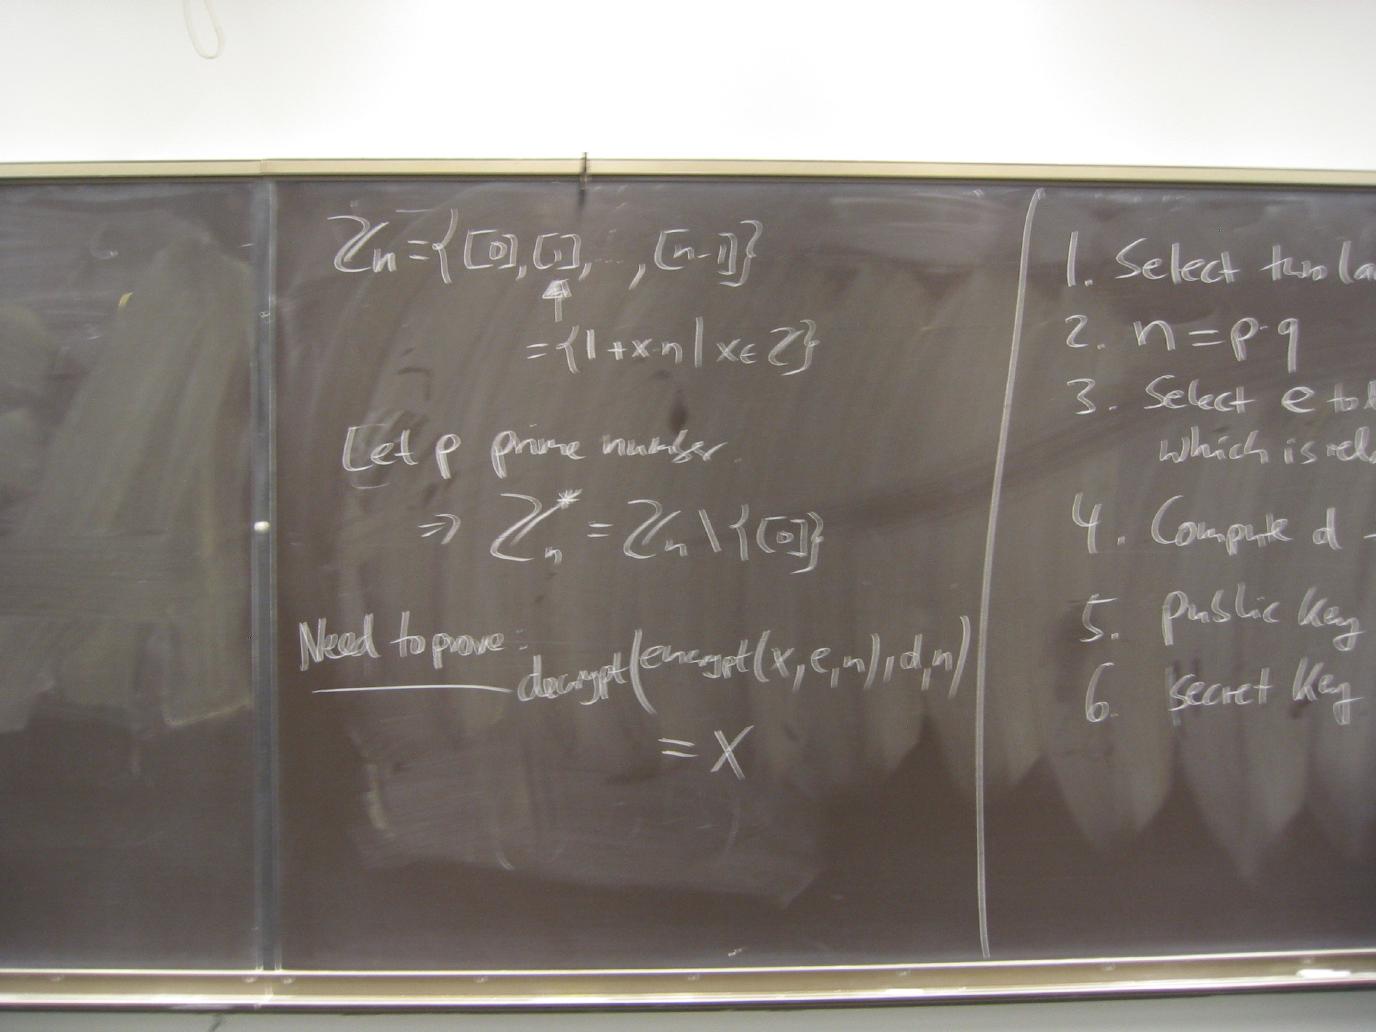 ℤn = {[0], [1], ..., [n-1]}
= {1+x·n | x∈ℤ}
Let p prime number.
⇒ ℤ*n = ℤn \ {[0]}
Need to prove:
decrypt(encrypt(x,e,n),d,n)
= x
1. Select two
2. n = p·q
3. Select e to
which is
4. Compute d
5. public key
6. secret key